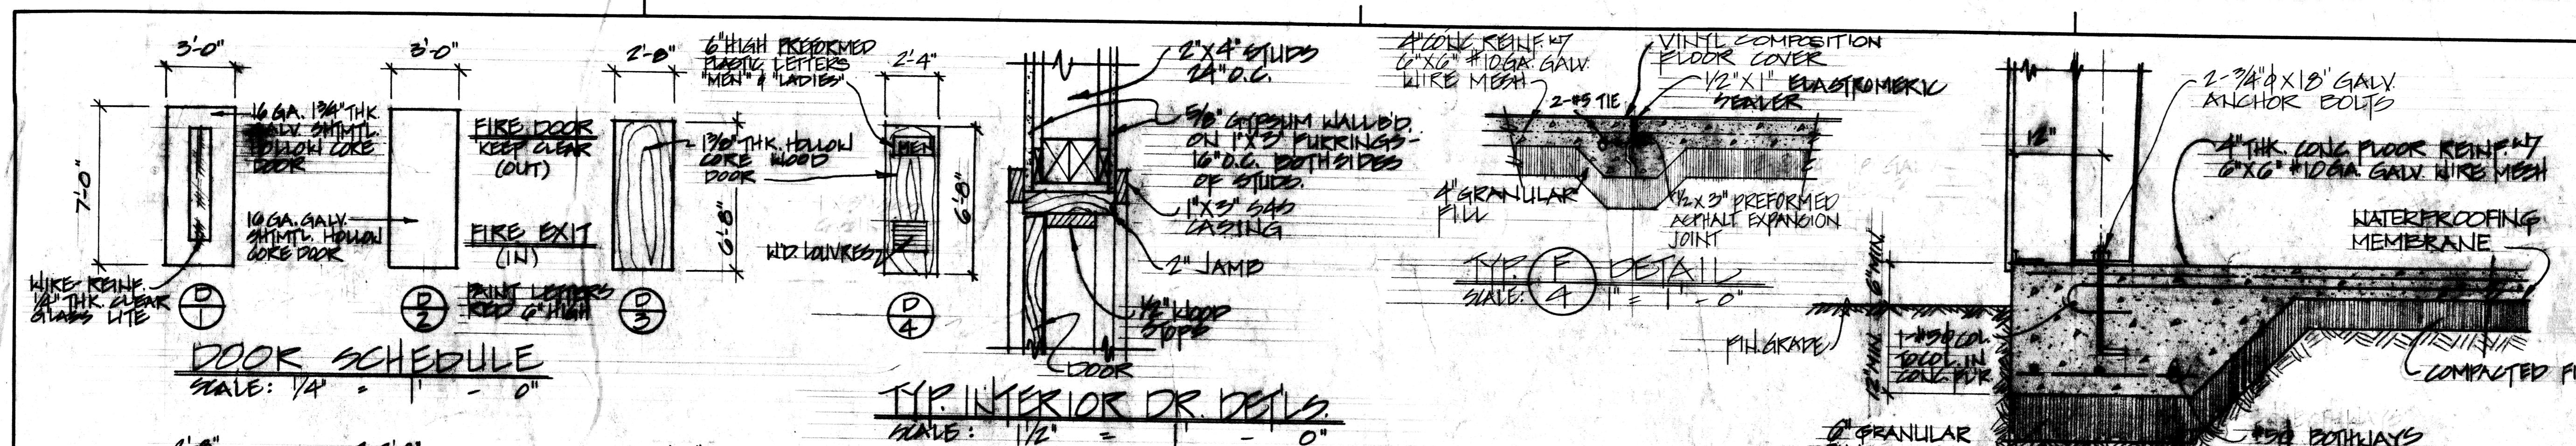 3'-0"
7'-0"
16 GA. 1 3/4" THK.
GALV. SHTMTL.
HOLLOW CORE
DOOR
16 GA. GALV.
SHTMTL. HOLLOW
CORE DOOR
WIRE-REINF.
1/4" THK. CLEAR
GLASS LITE
D
1
3'-0"
FIRE DOOR
KEEP CLEAR
(OUT)
FIRE EXIT
(IN)
PAINT LETTERS
RED 6" HIGH
D
2
2'-8"
1 3/8" THK. HOLLOW
CORE WOOD
DOOR
6'-8"
D
3
6" HIGH PREFORMED
PLASTIC LETTERS
"MEN" & "LADIES".
2'-4"
MEN
6'-8"
WD. LOUVRES
D
4
DOOR SCHEDULE
SCALE: 1/4" = 1' - 0"
2" X 4" STUDS
24" O.C.
5/8" GYPSUM WALLB'D.
ON 1"X3" FURRINGS-
16" O.C. BOTH SIDES
OF STUDS.
1"X3" S4S
CASING
2" JAMB
1/2" WOOD
STOPS
DOOR
TYP. INTERIOR DR. DETLS.
SCALE: 1 1/2" = 1' - 0"
4" CONC. REINF. W/
6"X6" #10 GA. GALV.
WIRE MESH
VINYL COMPOSITION
FLOOR COVER
1/2" X 1" ELASTROMERIC
SEALER
2-#5 TIE
4" GRANULAR
FILL
1/2 X 3" PREFORMED
ASPHALT EXPANSION
JOINT
TYP. F DETAIL
4
SCALE: 1" = 1' - 0"
2-3/4"φ X 18" GALV.
ANCHOR BOLTS
12"
4" THK. CONC. FLOOR REINF. W/
6"X6" #10 GA. GALV. WIRE MESH
WATERPROOFING
MEMBRANE
6" MIN.
FIN. GRADE
12" MIN.
1-#5φ COL.
TO COL. IN
CONC. FLR.
COMPACTED
6" GRANULAR
#5φ BOTHWAYS
2'-8"